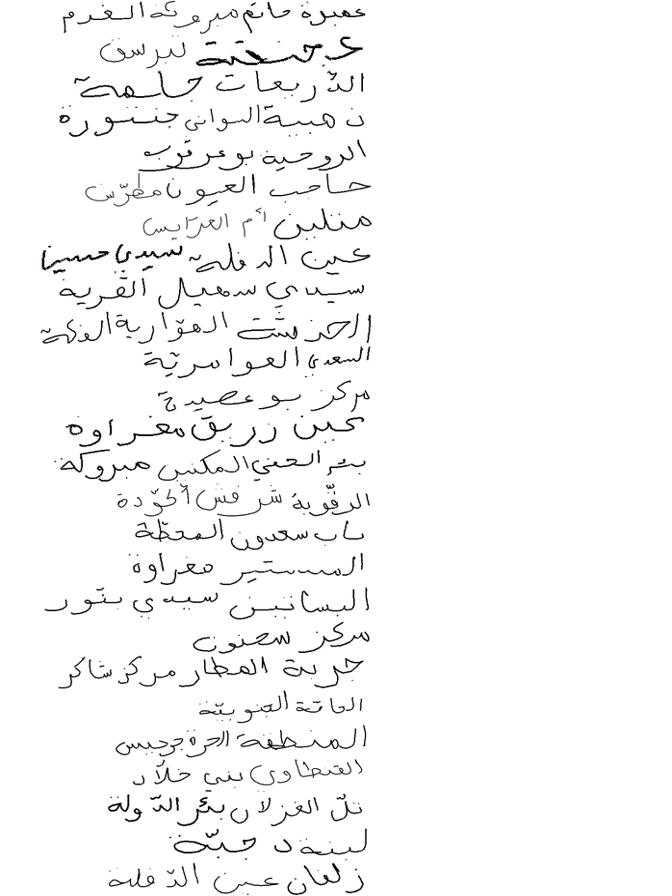 عميرة حاتم مبروكة الغدم
جنة لبرسق
الذريعات جلمة
ذهبية السواني جنتورة
الروحية بوعرقوب
حاجب العيون مطرّس
منلين أم العرايس
عين الدفلة سيدي حسين
سيدي سهيل القرية
الهوّارية
السعدي العوامريّة
مركز بوعصيدة
عين زريق مغراوة
بئر الحفي المكنين مبروكة
الرقّوبة
باب سعدون المحطّة
المنستير مغراوة
البساتين سيدي بنّور
مركز سحنون
جربة المطار مركز شاكر
القاتة الجنوبيّة
المنطقة الحرة جرجيس
القنطاوي بني خلّاد
تلّ الغزلان بئر الدّولة
لبنة دجبّة
زلفان عين الدّفلة